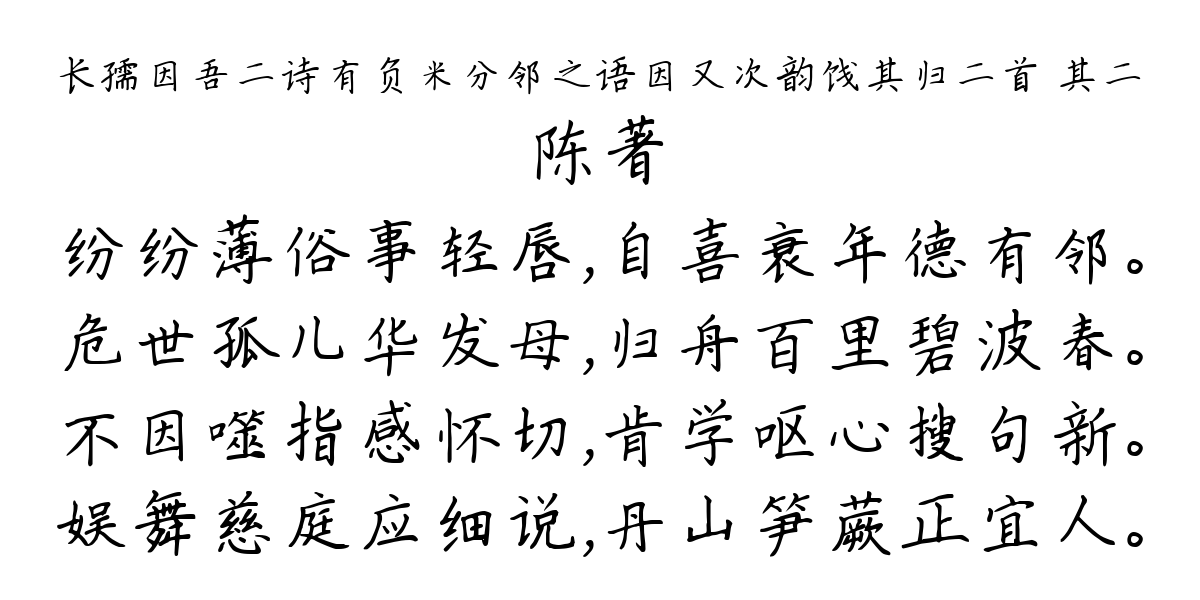 长孺因吾二诗有负米分邻之语因又次韵饯其归二首 其二
陈著
纷纷薄俗事轻唇,自喜衰年德有邻。
危世孤儿华发母,归舟百里碧波春。
不因噬指感怀切,肯学呕心搜句新。
娱舞慈庭应细说,丹山笋蕨正宜人。